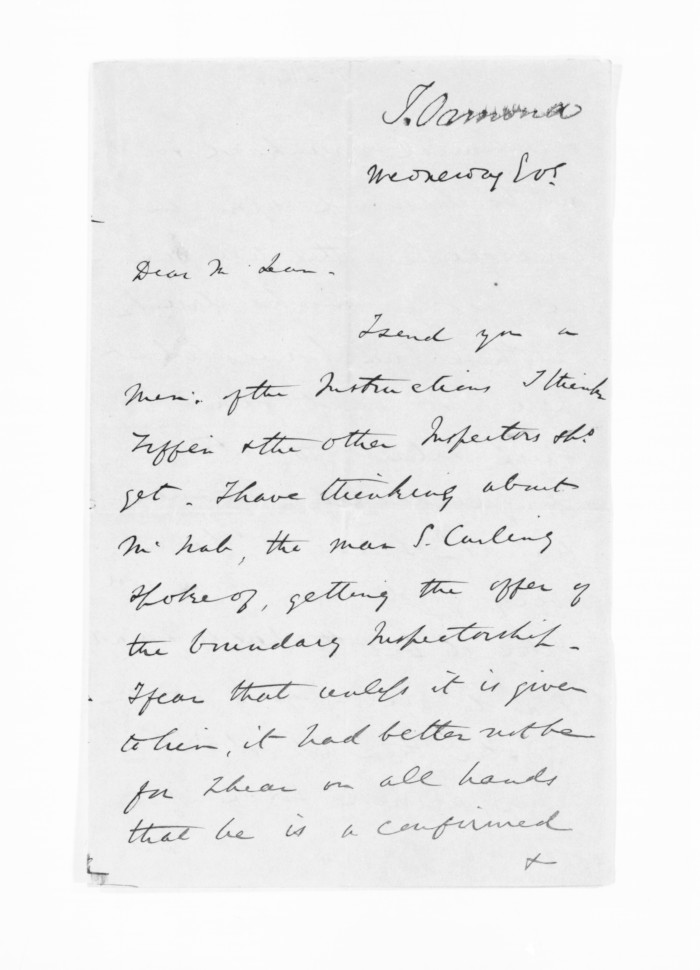 J. D. Ormond
Wednesday Evg.
Dear McLean.
I send you a
Mem. of the Instructions I think
Tiffen & the other Inspectors shd.
get. I have thinking about
McNab, the man S. Carling
spoke of, getting the offer of
the boundary Inspectorship.
I fear that unless it is given
to him, it had better not be
for I hear on all hands
that he is a confirmed